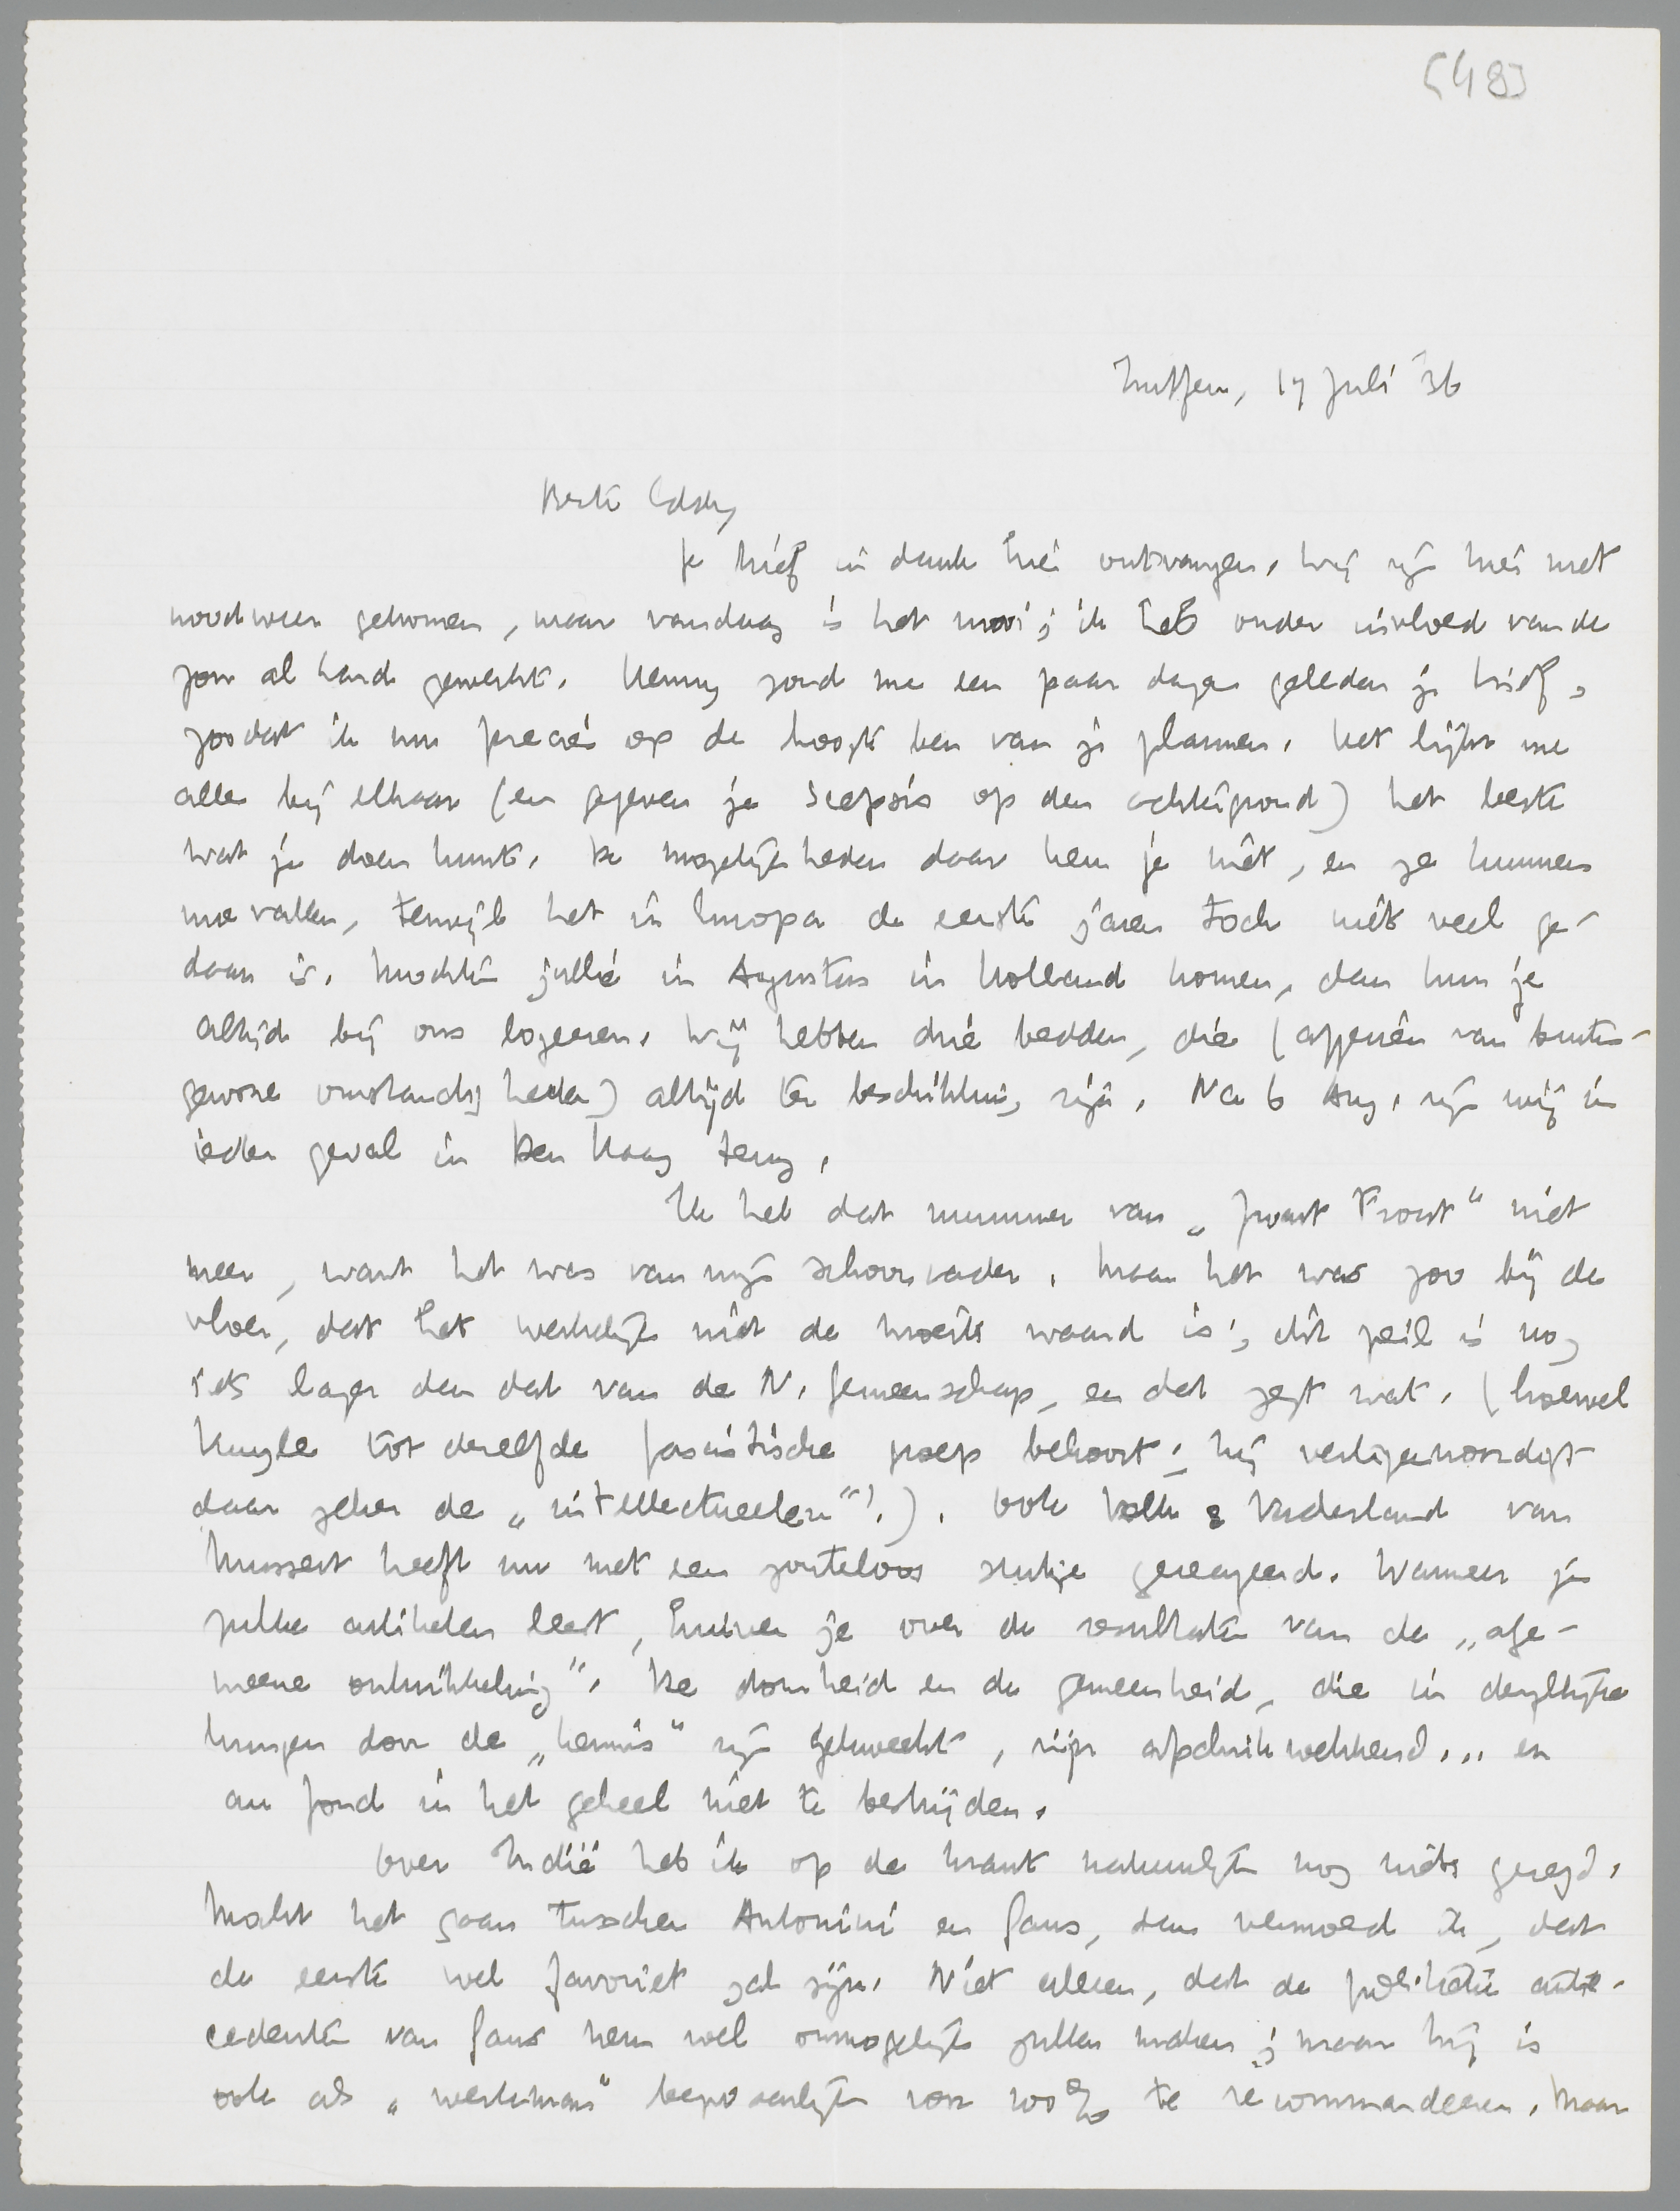 [48]
Zutfen, 17 Juli '36
Beste Eddy,
Je brief in dank hier ontvangen. Wij zijn hier met
noodweer gekomen, maar vandaag is het mooi; ik heb onder invloed van de
zon al hard gewerkt. Henny zond me een paar dagen geleden je brief,
zoodat ik nu precies op de hoogte ben van je plannen. Het lijkt me
alles bij elkaar (en gegeven je scepsis op den achtergrond) het beste
wat je doen kunt. De mogelijkheden daar ken je niet, en ze kunnen
meevallen, terwijl het in Europa de eerste jaren toch niet veel ge-
daan is. Mochten jullie in Augustus in Holland komen, dan kun je
altijd bij ons logeeren. Wij hebben drie bedden, die (afgezien van buiten-
gewone omstandigheden) altijd ter beschikking zijn. Na 6 Aug. zijn wij in
ieder geval in Den Haag terug.
Ik heb dat nummer van „Zwart Front" niet
meer, want het was van mijn schoonvader. Maar het was zoo bij de
vloer, dat het werkelijk niet de moeite waard is; dit peil is nog
iets lager dan dat van de N. Gemeenschap, en dat zegt wat. (hoewel
Kuyle tot dezelfde fascistische groep behoort; hij vertegenwoordigt
daar zeker de „intellectueelen"!). Ook Volk & Vaderland van
Mussert heeft nu met een zouteloos stukje gereageerd. Wanneer je
zulke artikelen leest, huiver je over de resultaten van de „alge-
meene ontwikkeling". De domheid en de gemeenheid, die in dergelijke
kringen door de „kennis" zijn gekweekt, zijn afschrikwekkend... en
au fond in het geheel niet te bestrijden.
Over Indië heb ik op de krant natuurlijk nog niets gezegd.
Mocht het gaan tusschen Antonini en Gans, dan vermoed ik, dat
de eerste wel favoriet zal zijn. Niet alleen, dat de politieke ante-
cedenten van Gans hem wel onmogelijk zullen maken; maar hij is
ook als „werkman" bezwaarlijk voor 100% te recommandeeren. Maar